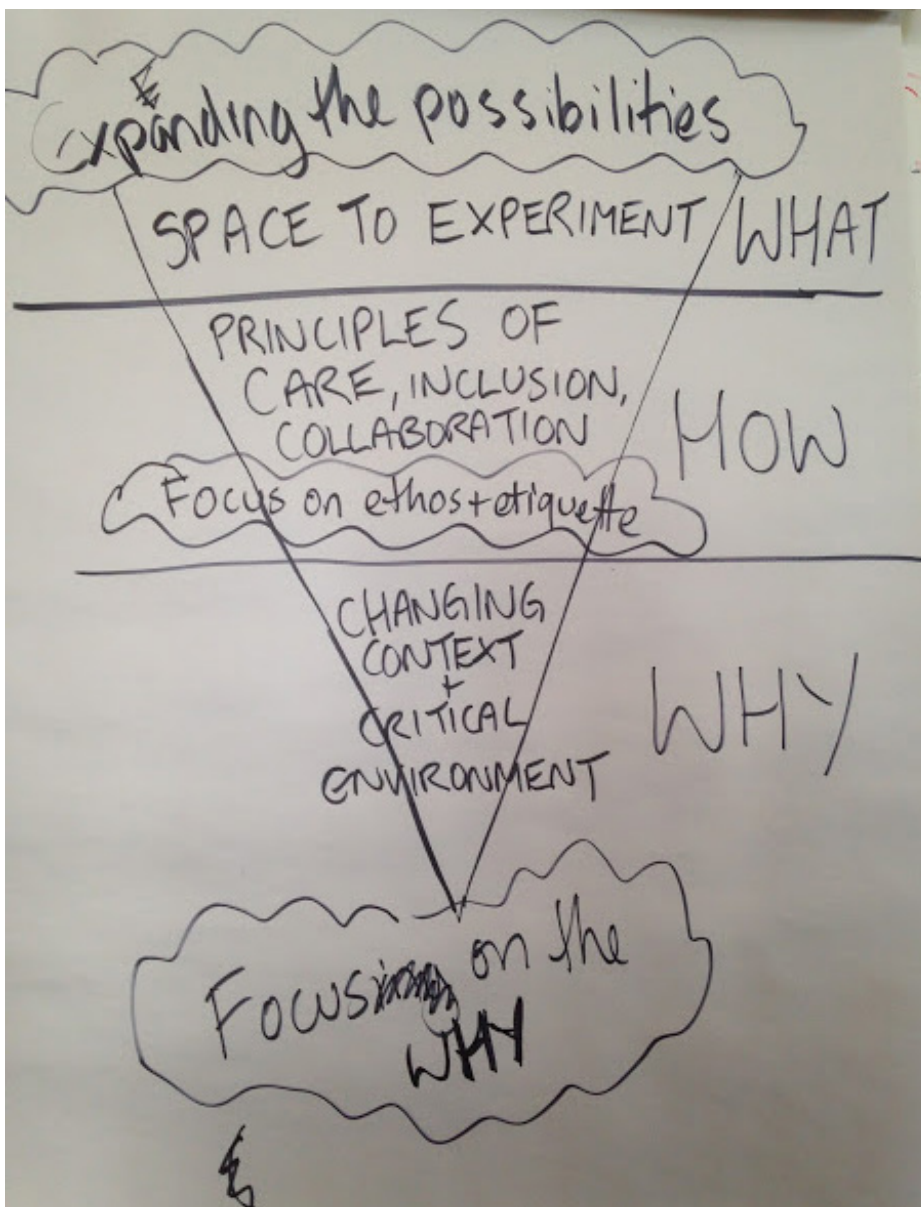 Expanding the possibilities
SPACE TO EXPERIMENT
WHAT
PRINCIPLES OF
CARE, INCLUSION,
COLLABORATION
HOW
Focus on ethos + etiquette
CHANGING
CONTEXT
+
CRITICAL
ENVIRONMENT
WHY
Focus on the
WHY